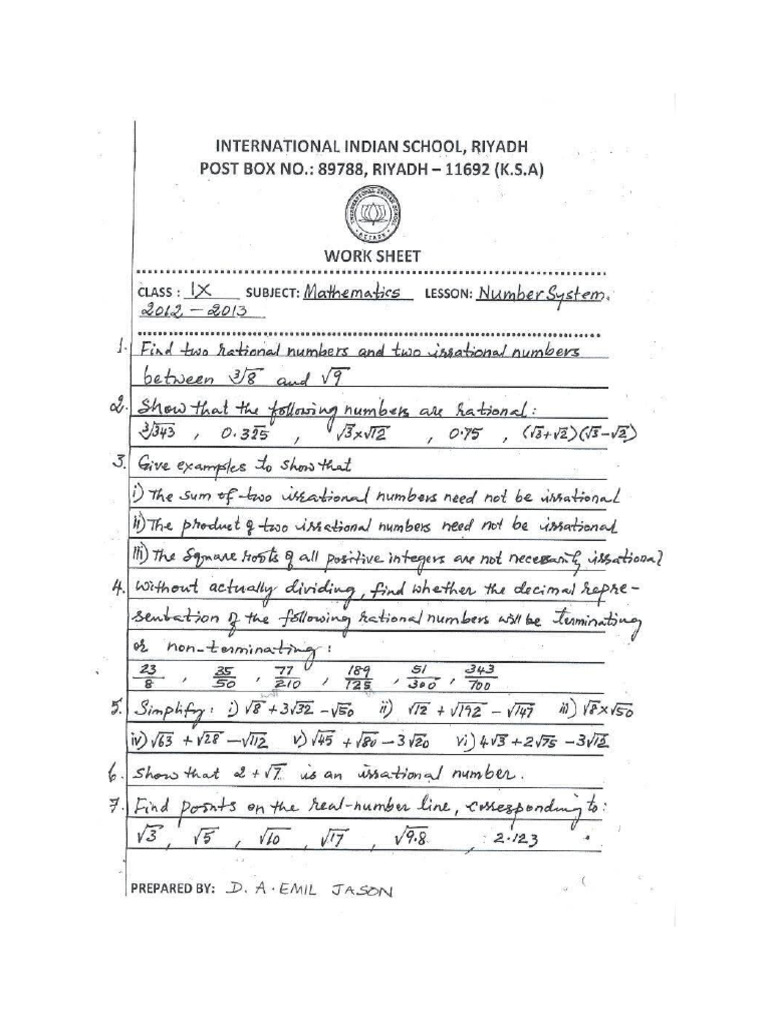 INTERNATIONAL INDIAN SCHOOL, RIYADH
POST BOX NO.: 89788, RIYADH – 11692 (K.S.A)
INTERNATIONAL INDIAN SCHOOL
RIYADH
WORK SHEET
CLASS : IX SUBJECT: Mathematics LESSON: Number System.
2012 – 2013
1. Find two rational numbers and two irrational numbers
between ∛8 and √9
2. Show that the following numbers are rational :
∛343 , 0.32̅5̅ , √3×√12 , 0.75 , (√3+√2)(√3−√2)
3. Give examples to show that
i) The sum of two irrational numbers need not be irrational
ii) The product of two irrational numbers need not be irrational
iii) The square roots of all positive integers are not necessarily irrational
4. Without actually dividing, find whether the decimal repre-
sentation of the following rational numbers will be terminating
or non-terminating :
23/8 , 35/50 , 77/210 , 189/125 , 51/300 , 343/700
5. Simplify : i) √8 + 3√32 − √50 ii) √12 + √192 − √147 iii) √8 × √50
iv) √63 + √28 − √112 v) √45 + √80 − 3√20 vi) 4√3 + 2√75 − 3√12
6. Show that 2 + √7 is an irrational number.
7. Find points on the real-number line, corresponding to :
√3 , √5 , √10 , √17 , √9.8 , 2.123
PREPARED BY: D. A. EMIL JASON